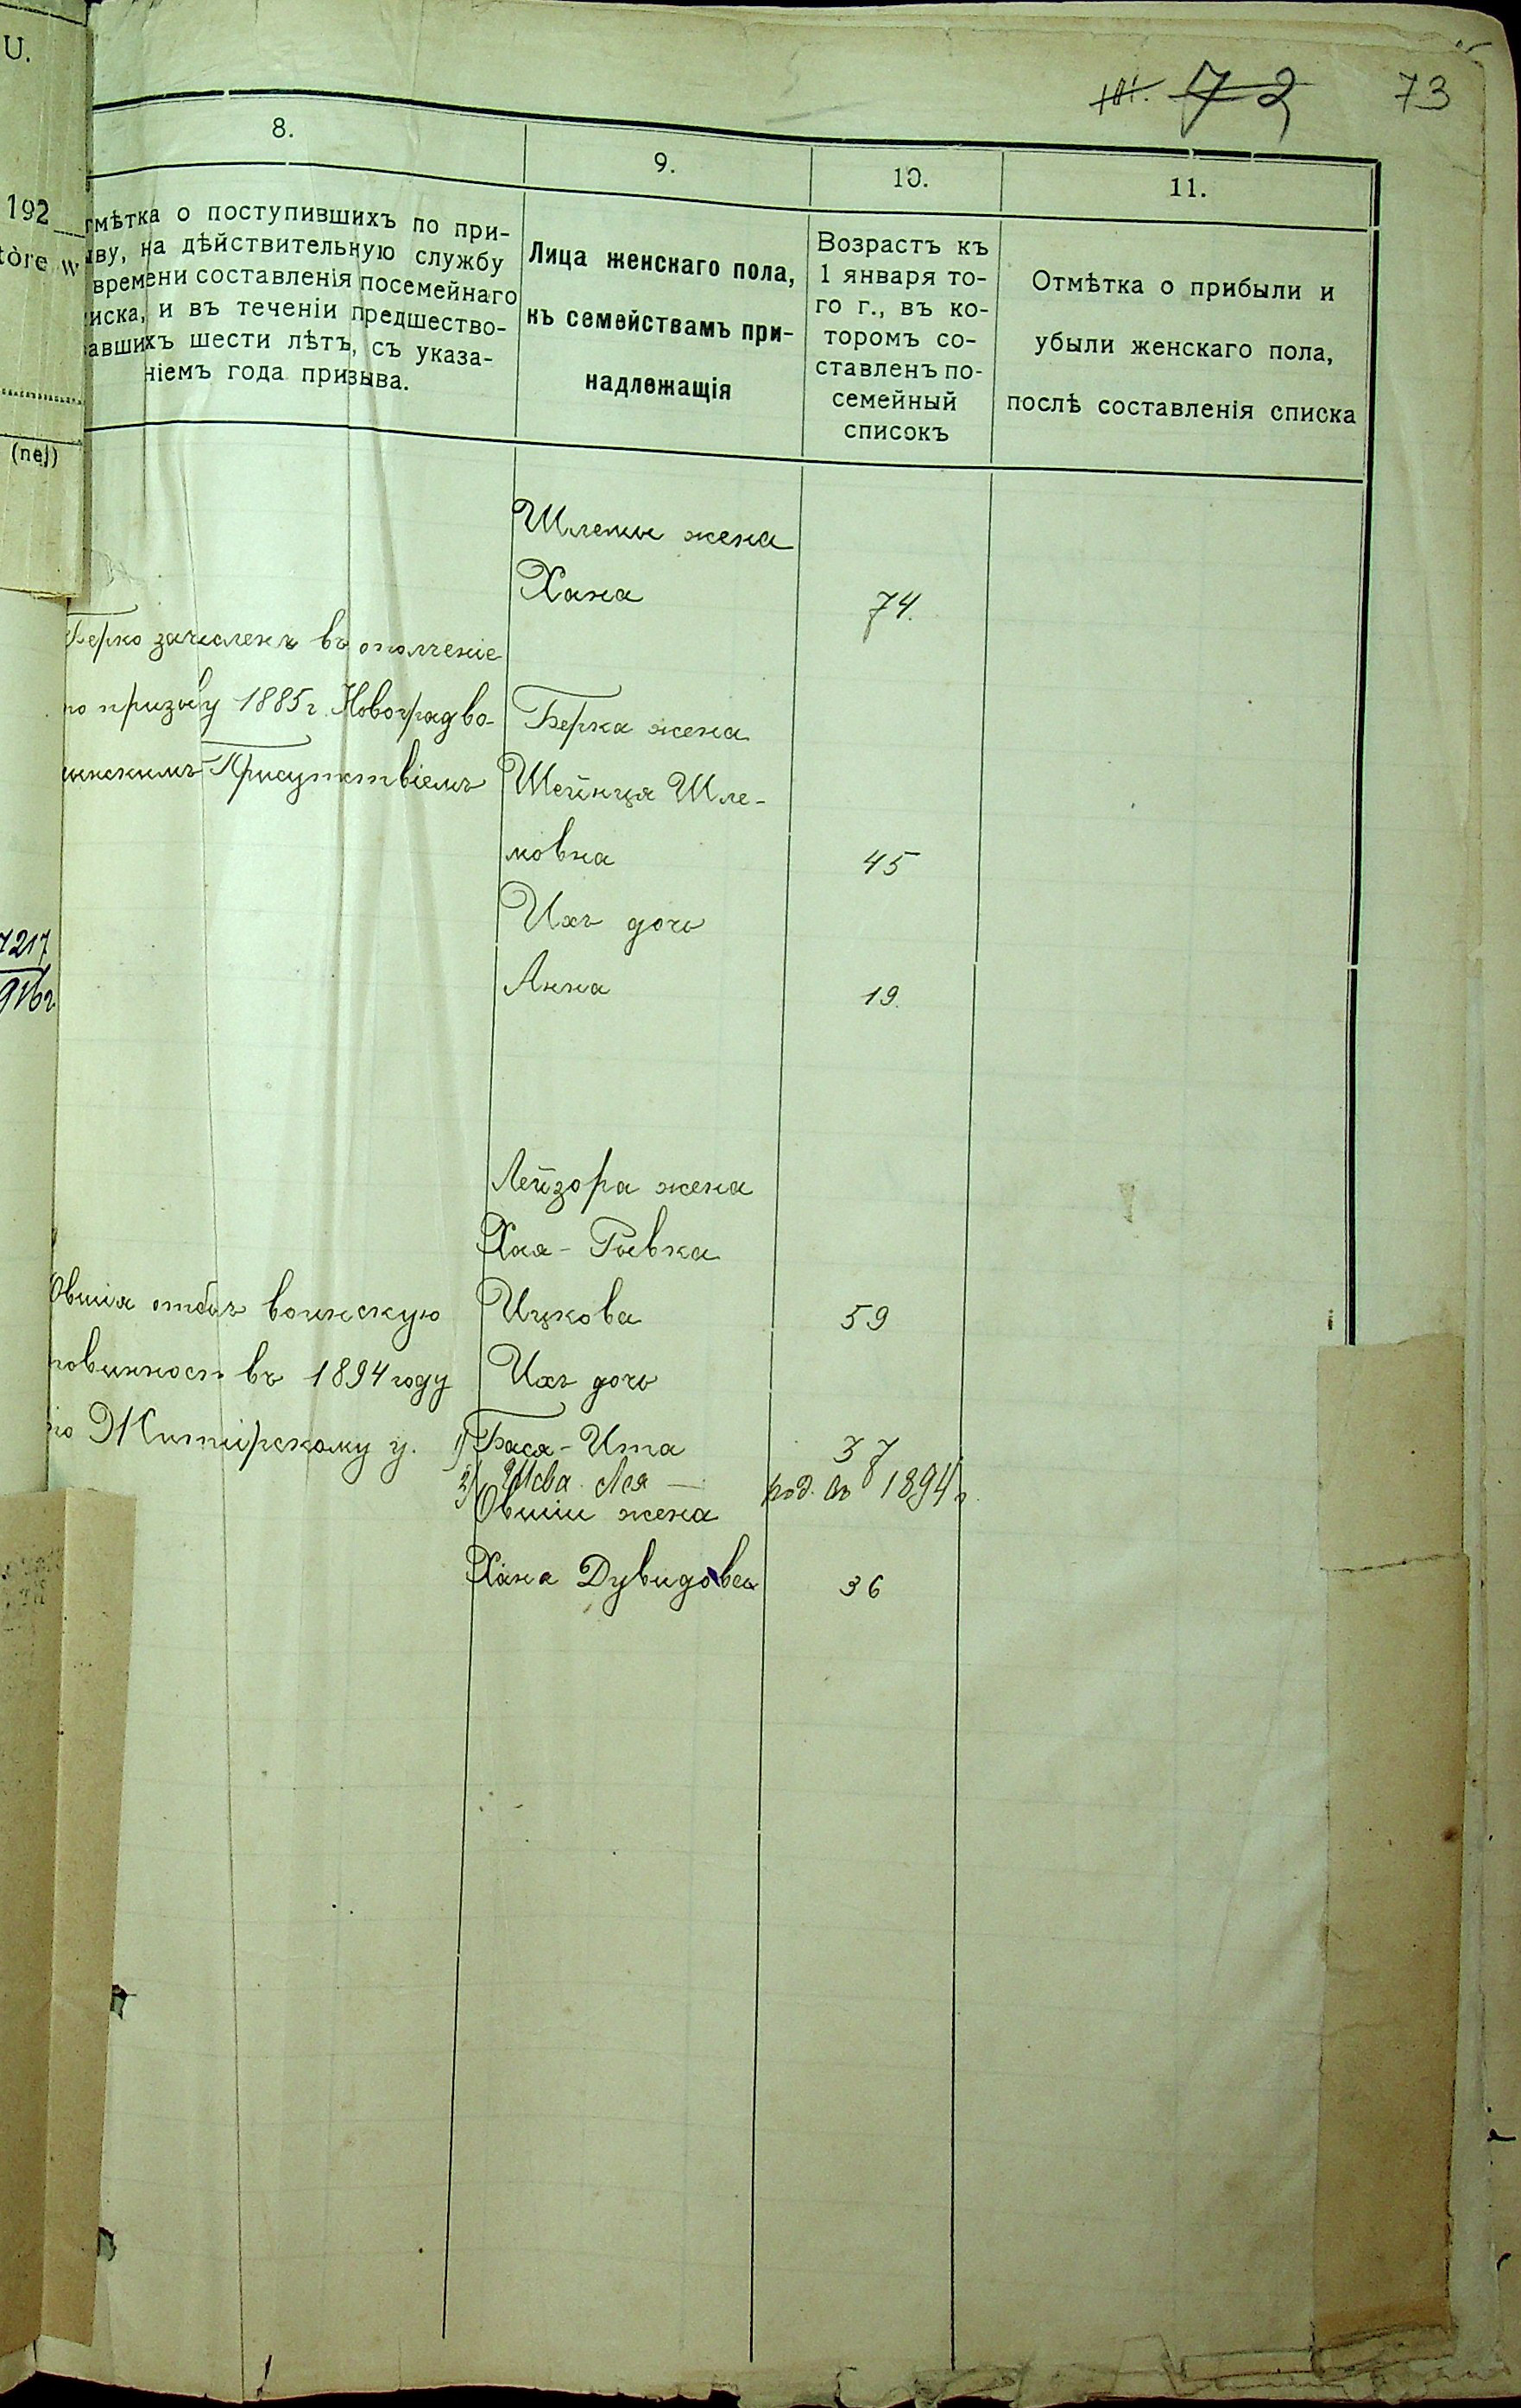 U.
192
tòre w
(nej)
7217
916г
101. 72 73
8. 9. 10. 11.
тмѣтка о поступившихъ по при-
ыву, на дѣйствительную службу
времени составленія посемейнаго
иска, и въ теченіи предшество-
авшихъ шести лѣтъ, съ указа-
ніемъ года призыва.
Лица женскаго пола,
къ семействамъ при-
надлежащія
Возрастъ къ
1 января то-
го г., въ ко-
торомъ со-
ставленъ по-
семейный
списокъ
Отмѣтка о прибыли и
убыли женскаго пола,
послѣ составленія списка
Шлемы жена
Хана 74.
Берко зачисленъ въ ополченіе
по призыву 1885 г. Новоградво-
линскимъ Присутствіемъ
Берка жена
Шейнця Шле-
мовна 45
Ихъ дочь
Анна 19.
Лейзора жена
Хая-Ривка
Ицкова 59
Овшія отбылъ воинскую
повинность въ 1894 году
по Житмірскому у.
Ихъ дочь
1) Бася-Ита 37
2) Шева Лея — род. въ 1894 г.
Овшіи жена
Хана Дувидовна 36